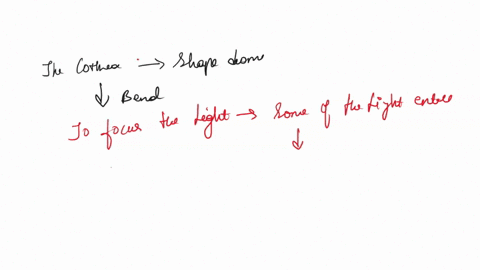 The Cornea → Shape dome
↓ Bend
To focus the light → Some of the light enters
↓